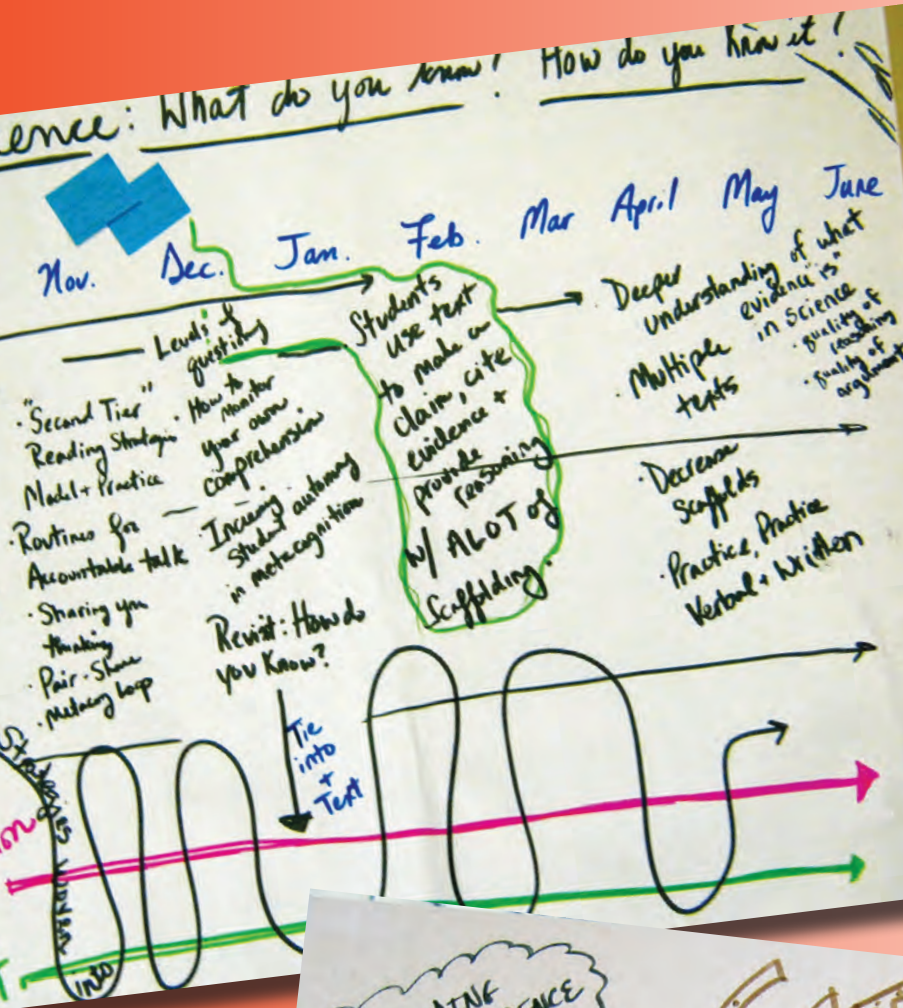 ence: What do you know? How do you know it?
Nov. Dec. Jan. Feb. Mar April May June
Levels of
questioning
"Second Tier"
Reading Strategies
Model + Practice
· Routines for
Accountable talk
· Sharing you
thinking
· Pair-Share
· Metacog loop
· How to
Monitor
your own
comprehension
· Increasing
Student autonomy
in metacognition
Revisit: How do
you Know?
Tie
into
+
Text
Students
use text
to make a
claim, cite
evidence +
provide
reasoning
w/ ALOT of
Scaffolding.
· Deeper
understanding of what
"evidence is"
in science
· quality of
reasoning
· quality of
arguments
· Multiple
texts
· Decrease
Scaffolds
· Practice, Practice
Verbal + Written
Strategies woven
into
ENCE